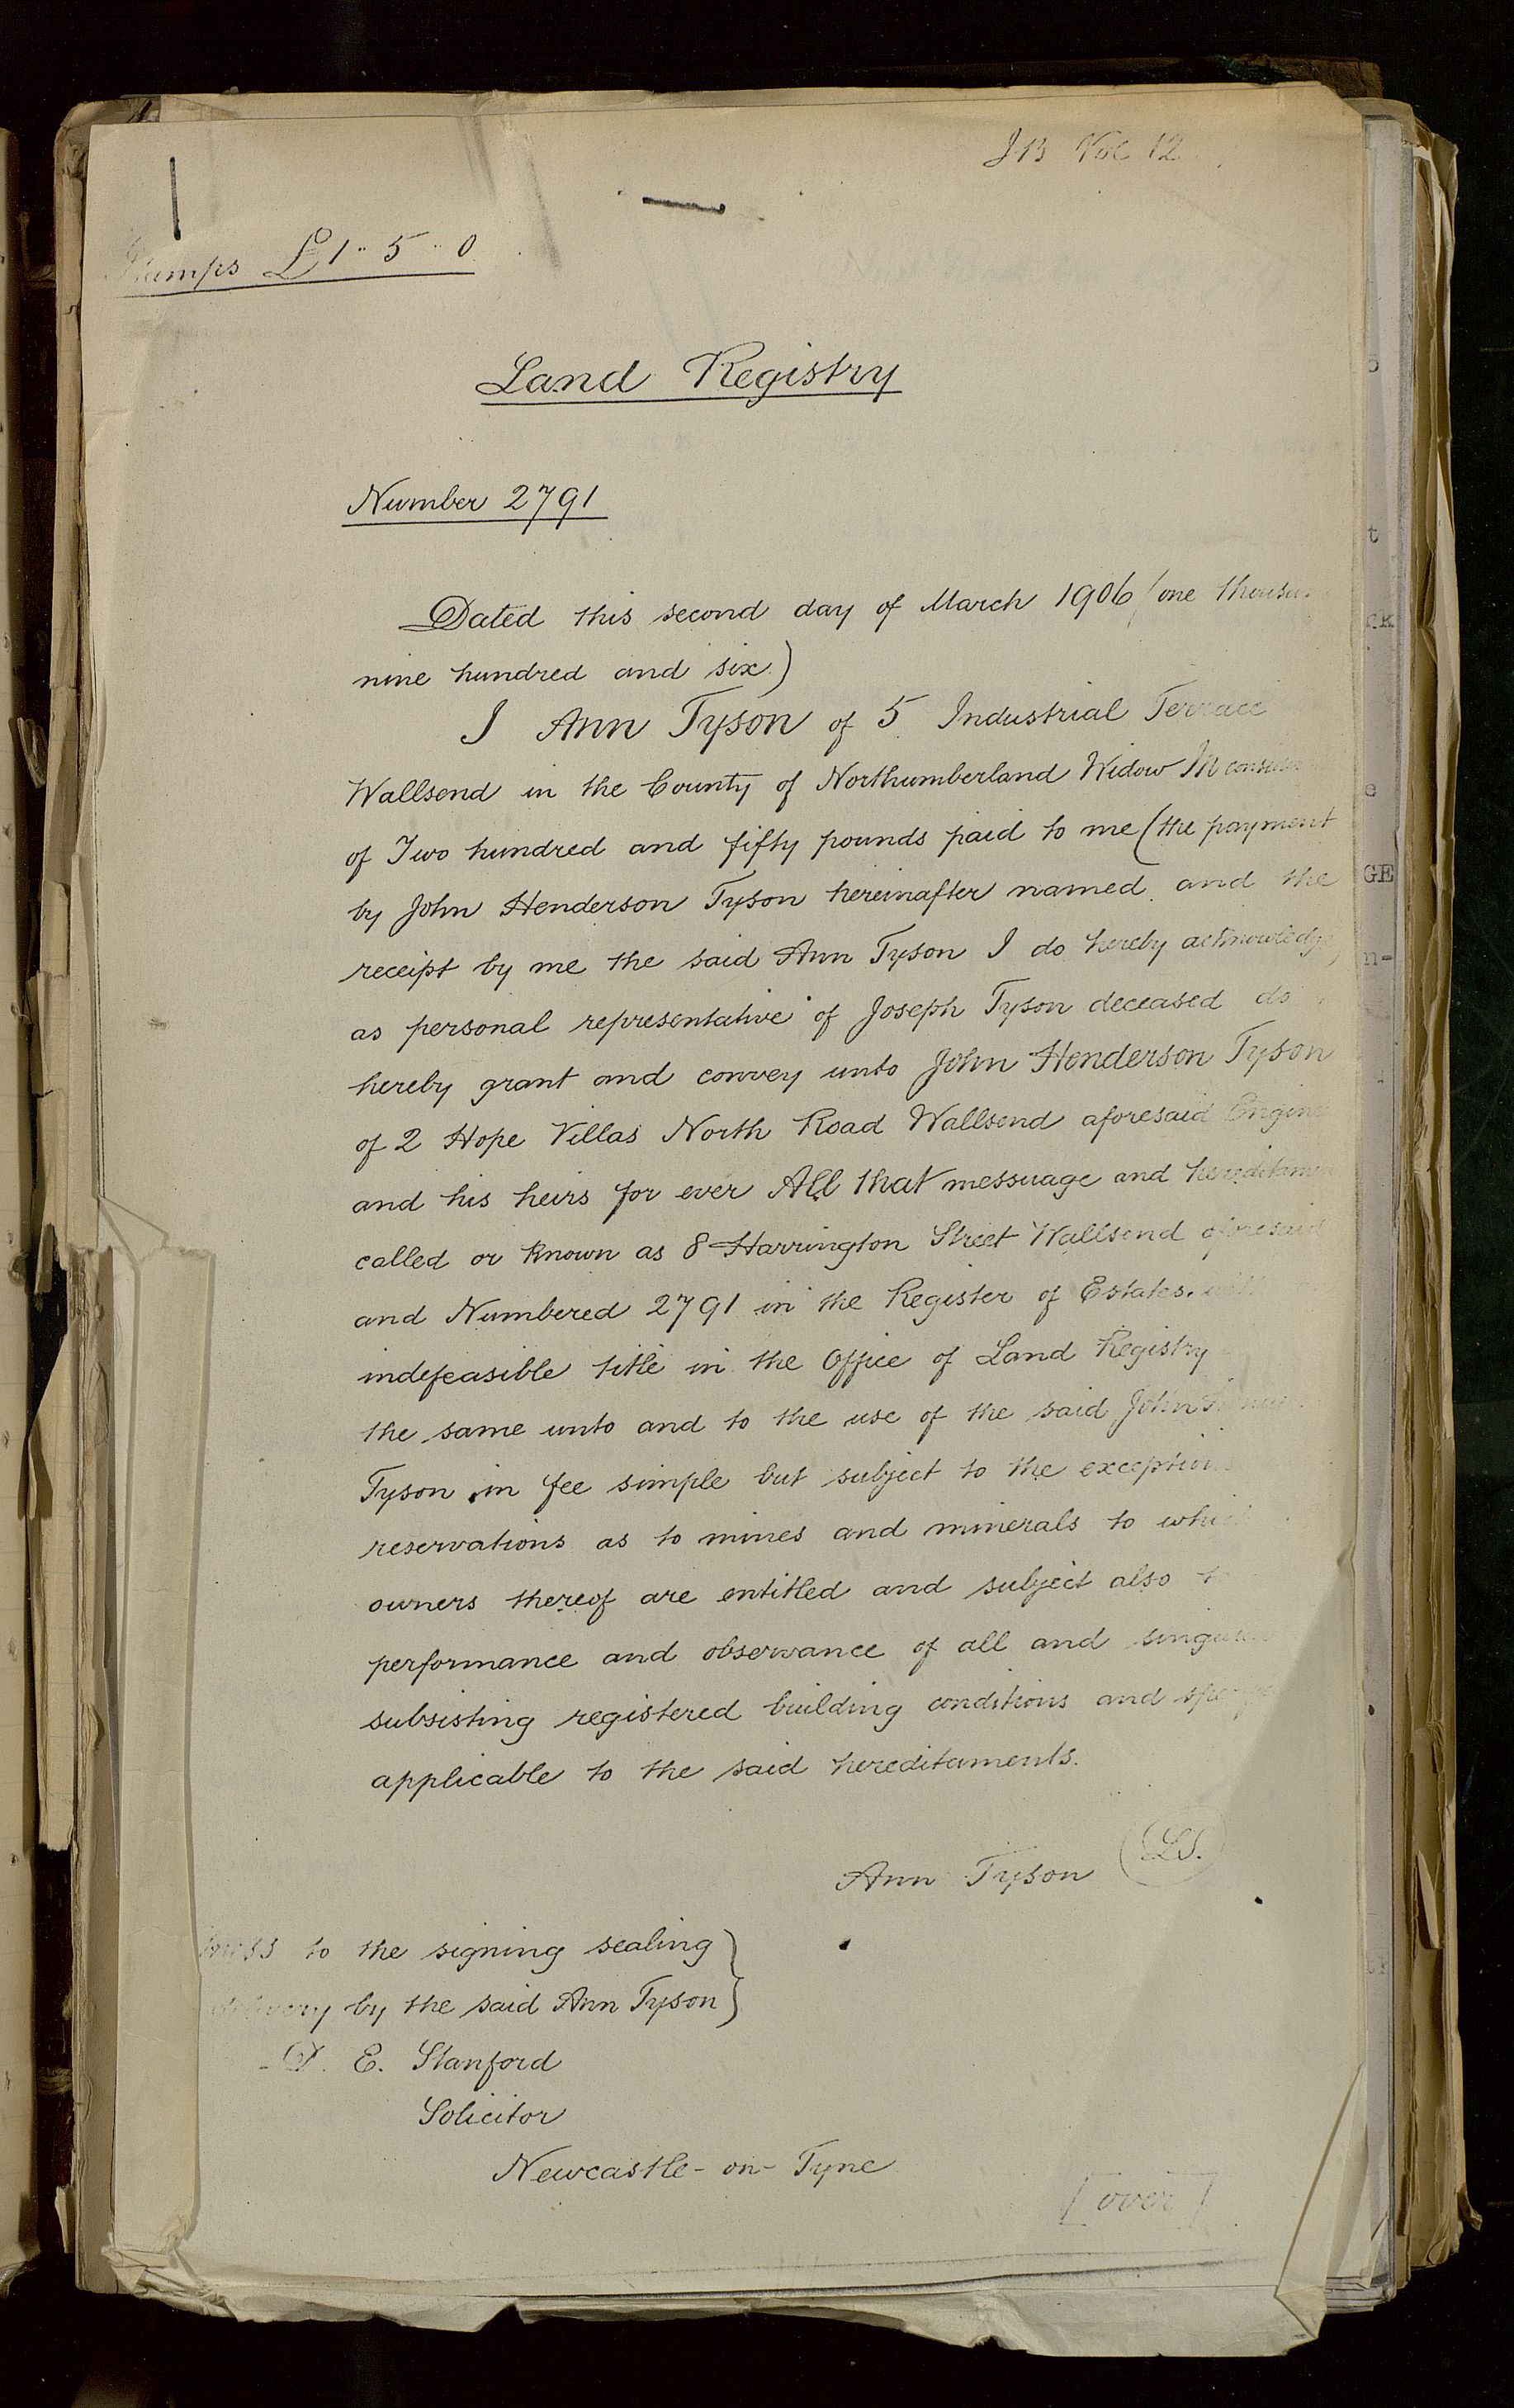 J13 Vol 12
Stamps £1 " 5 " 0
Land Registry
Number 2791
Dated this second day of March 1906 (one
nine hundred and six)
I Ann Tyson of 5 Industrial Terrace
Wallsend in the County of Northumberland Widow In
of Two hundred and fifty pounds paid to me (the payment
by John Henderson Tyson hereinafter named and the
receipt by me the said Ann Tyson I do hereby acknowledge)
as personal representative of Joseph Tyson deceased do
hereby grant and convey unto John Henderson Tyson
of 2 Hope Villas North Road Wallsend aforesaid
and his heirs for ever All that messuage and
called or known as 8 Harrington Street Wallsend aforesaid
and Numbered 2791 in the Register of Estates with
indefeasible title in the Office of Land Registry
the same unto and to the use of the said John
Tyson in fee simple but subject to the
reservations as to mines and minerals to which
owners thereof are entitled and subject also to
performance and observance of all and
subsisting registered building conditions and
applicable to the said hereditaments.
Ann Tyson (LS.)
to the signing sealing }
delivery by the said Ann Tyson }
E. Stanford
Solicitor
Newcastle-on-Tyne
[over]
t
e
GE
n-